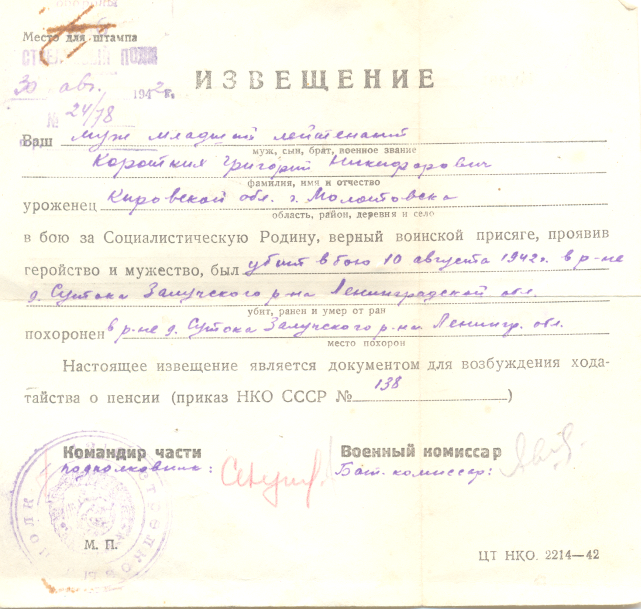 Место для штампа
30 авг. 1942 г.
№ 24/78
ИЗВЕЩЕНИЕ
Ваш муж младший лейтенант
муж, сын, брат, военное звание
Коротких Григорий Никифорович
фамилия, имя и отчество
уроженец Кировской обл. г. Молотовска
область, район, деревня и село
в бою за Социалистическую Родину, верный воинской присяге, проявив
геройство и мужество, был убит в бою 10 августа 1942 г. в р-не
д. Сутока Залучского р-на Ленинградской обл.
убит, ранен и умер от ран
похоронен в р-не д. Сутока Залучского р-на Ленингр. обл.
место похорон
Настоящее извещение является документом для возбуждения хода-
тайства о пенсии (приказ НКО СССР № 138)
Командир части Военный комиссар
подполковник: Бат. комиссар:
М. П.
ЦТ НКО. 2214—42